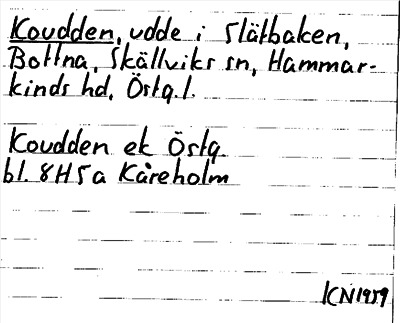 Koudden, udde i Slätbaken,
Bottna, Skällviks sn, Hammar-
kinds hd, Östg.l.
Koudden ek Östg.
bl. 8H5a Kåreholm
KN1959